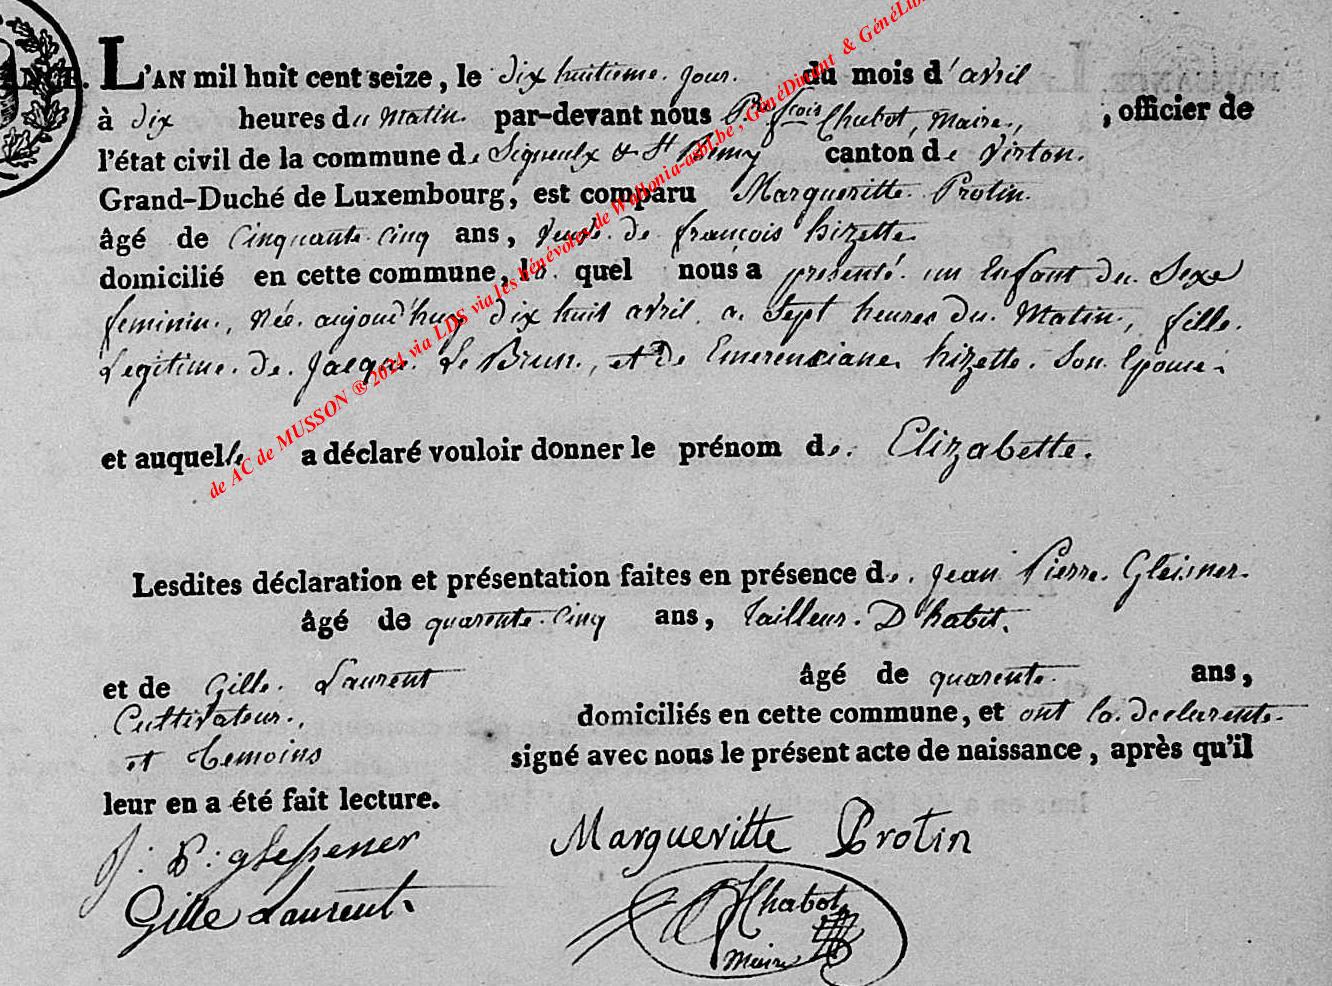 L'AN mil huit cent seize, le dix huitieme. jour. du mois d'avril
à dix heures du Matin. par-devant nous P.re fçois Chabot, Maire, , officier de
l'état civil de la commune de Signeulx & St Remy canton de Virton.
Grand-Duché de Luxembourg, est comparu Margueritte Protin.
âgé de Cinquante cinq ans, veuve de françois hizette
domicilié en cette commune, la quel nous a présenté un Enfant du Sexe
feminin, Née aujourd'huy dix huit avril a Sept heures du Matin, fille
Legitime de Jacque Le Brun, et de Emerenciane hizette Son Epouse
et auquelle a déclaré vouloir donner le prénom de Elizabette.
Lesdites déclaration et présentation faites en présence de Jean Pierre Gleisner
âgé de quarente cinq ans, tailleur D'habit.
et de Gille Laurent âgé de quarente ans,
Cultivateur, domiciliés en cette commune, et ont la declarente
et temoins signé avec nous le présent acte de naissance, après qu'il
leur en a été fait lecture.
J: P: glesener Margueritte Protin
Gille Laurent. Chabot
Maire
de AC de MUSSON ® 2024 via LDS via les bénévoles de Wallonia-asbl.be, GénéDinant & GénéLib